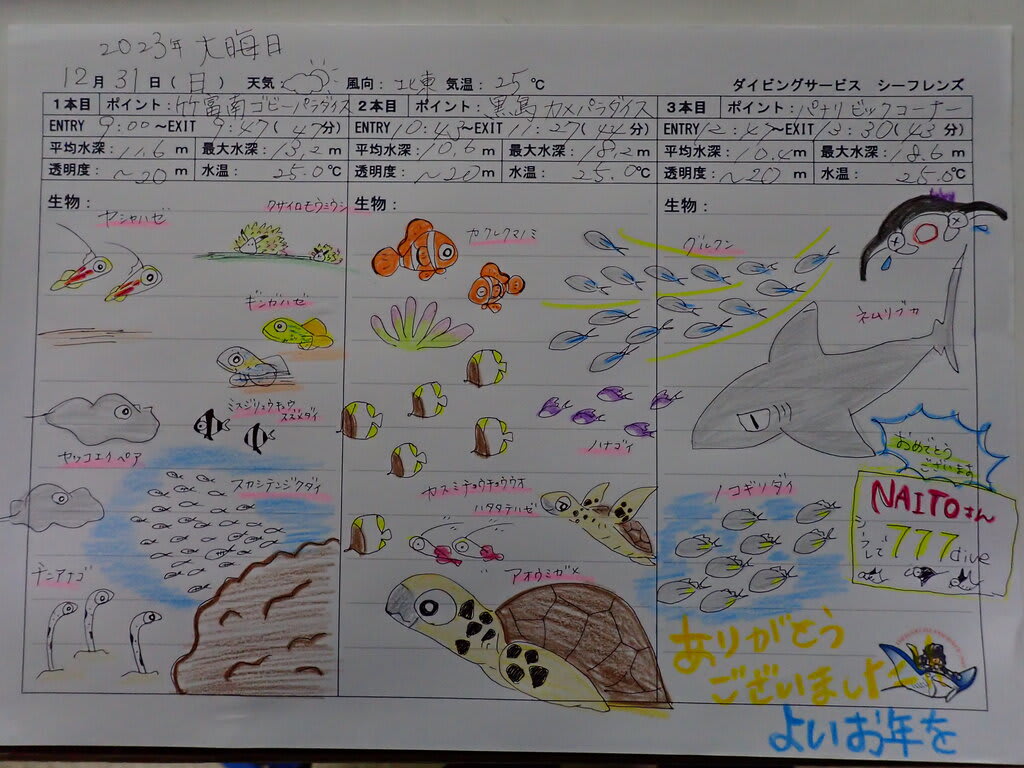 2023年 大晦日
12月 31日(日) 天気 風向: 北東 気温: 25℃ ダイビングサービス シーフレンズ
1本目 ポイント: 竹富南ゴビーパラダイス
ENTRY 9:00~EXIT 9:47(47分)
平均水深: 11.6m 最大水深: 13.2m
透明度: ~20m 水温: 25.0℃
生物:
ヤシャハゼ
クサイロモウミウシ
ギンガハゼ
ミスジリュウキュウ
スズメダイ
ヤッコエイペア
スカシテンジクダイ
チンアナゴ
2本目 ポイント: 黒島 カメパラダイス
ENTRY 10:43~EXIT 11:27(44分)
平均水深: 10.6m 最大水深: 18.2m
透明度: ~20m 水温: 25.0℃
生物:
カクレクマノミ
グルクン
ハナゴイ
カスミチョウチョウウオ
ハタタテハゼ
アオウミガメ
3本目 ポイント: パナリビックコーナー
ENTRY 12:47~EXIT 13:30(43分)
平均水深: 10.4m 最大水深: 18.6m
透明度: ~20m 水温: 25.0℃
生物:
ネムリブカ
ノコギリダイ
おめでとう
ございます
NAITOさん
777dive
ありがとう
ございました
よいお年を